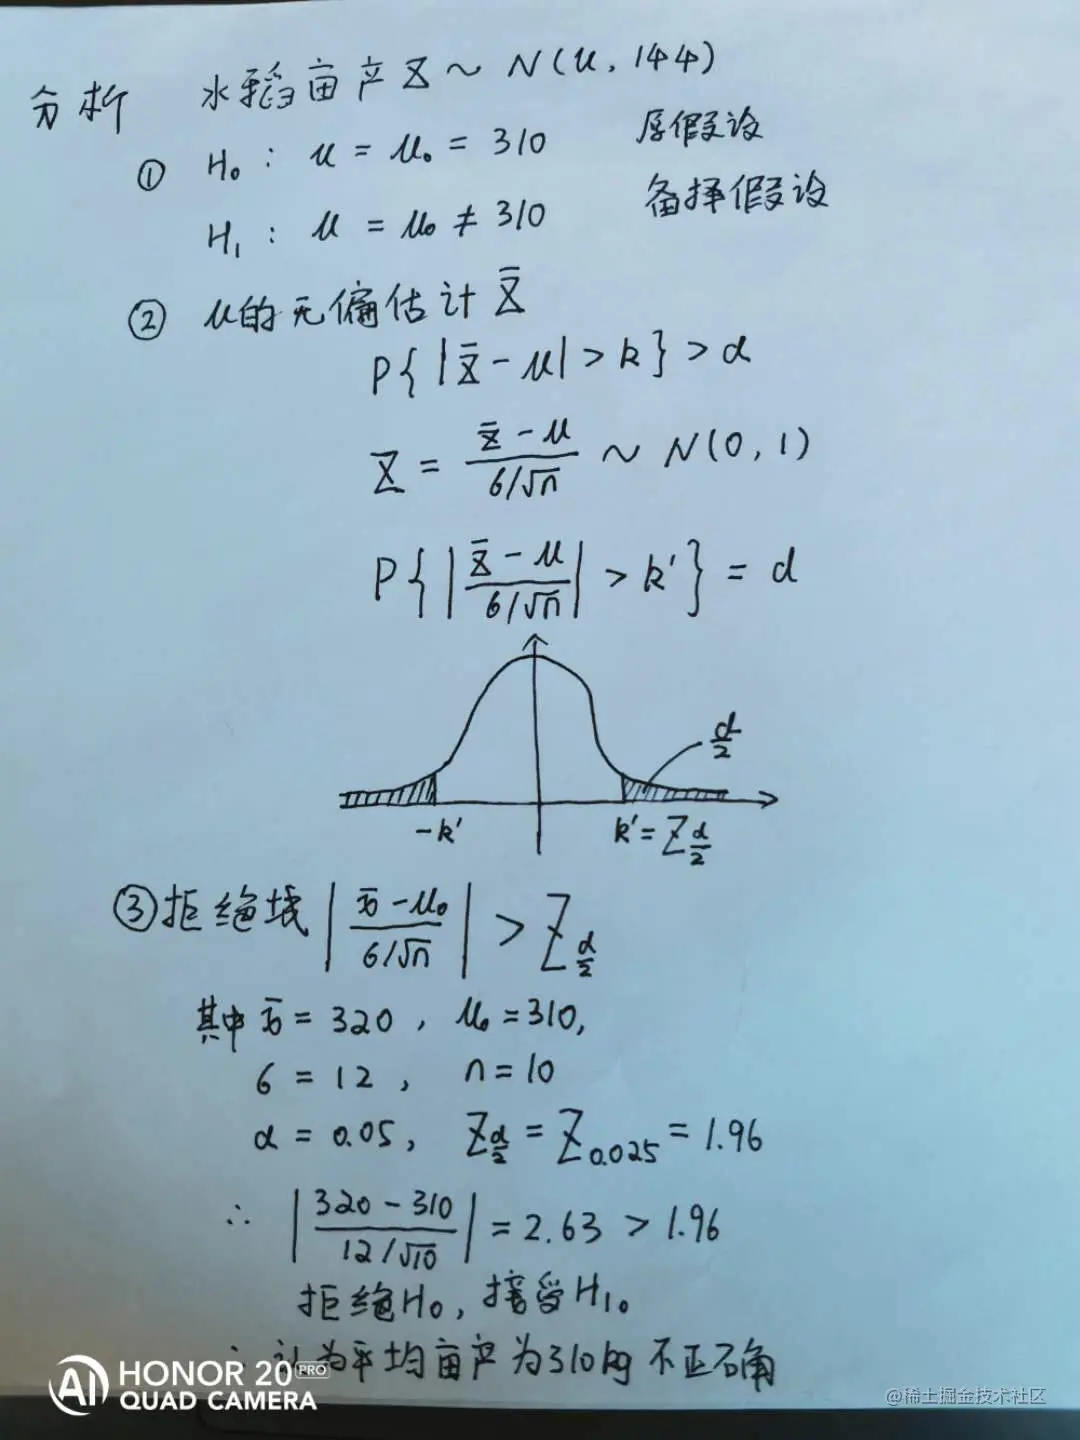 分析 水稻亩产X ~ N(μ, 144)
① H₀ : μ = μ₀ = 310 原假设
H₁ : μ = μ₀ ≠ 310 备择假设
② μ的无偏估计 X̄
P{ |X̄ - μ| > k } > α
Z = (X̄ - μ)/(σ/√n) ~ N(0, 1)
P{ |(X̄ - μ)/(σ/√n)| > k' } = α
α/2
-k' k' = Z_{α/2}
③ 拒绝域 |(x̄ - μ₀)/(σ/√n)| > Z_{α/2}
其中 x̄ = 320, μ₀ = 310,
σ = 12, n = 10
α = 0.05, Z_{α/2} = Z_{0.025} = 1.96
∴ |(320 - 310)/(12/√10)| = 2.63 > 1.96
拒绝H₀, 接受H₁。
∴ 认为平均亩产为310kg 不正确
HONOR 20 PRO
AI QUAD CAMERA
@稀土掘金技术社区